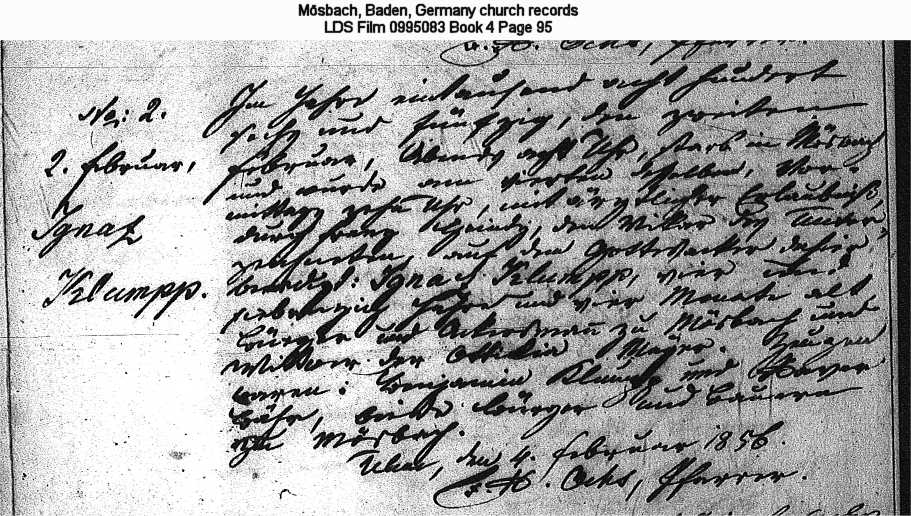 Mösbach, Baden, Germany church records
LDS Film 0995083 Book 4 Page 95
Ochs, Pfarrer.
No: 2.
2. Februar,
Ignaz
Klumpp.
Im Jahre eintausend acht hundert
sechs und fünfzig, den zweiten
Februar, Abends acht Uhr, starb in Mösbach
und wurde am vierten desselben, Vor-
mittags zehn Uhr, mit ärztlicher Erlaubniß,
durch Franz den Vikar des Unter-
zeichneten, auf dem Gottesacker dahier
beerdigt: Ignaz Klumpp, vier und
siebenzig Jahre und vier Monate alt
Bürger und Ackersmann zu Mösbach und
Wittwer der Ottilia Zeugen
waren: Benjamin Klumpp und Xaver
beide Bürger und Bauern
zu Mösbach.
Ulm, den 4. Februar 1856.
Ochs, Pfarrer.